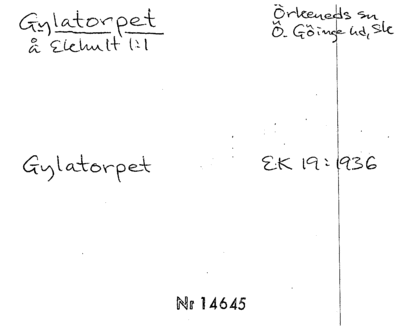 Gylatorpet
å Ekhult 1:1
Örkeneds sn
Ö. Göinge hd, Sk
Gylatorpet
EK 19:1936
Nr 14645